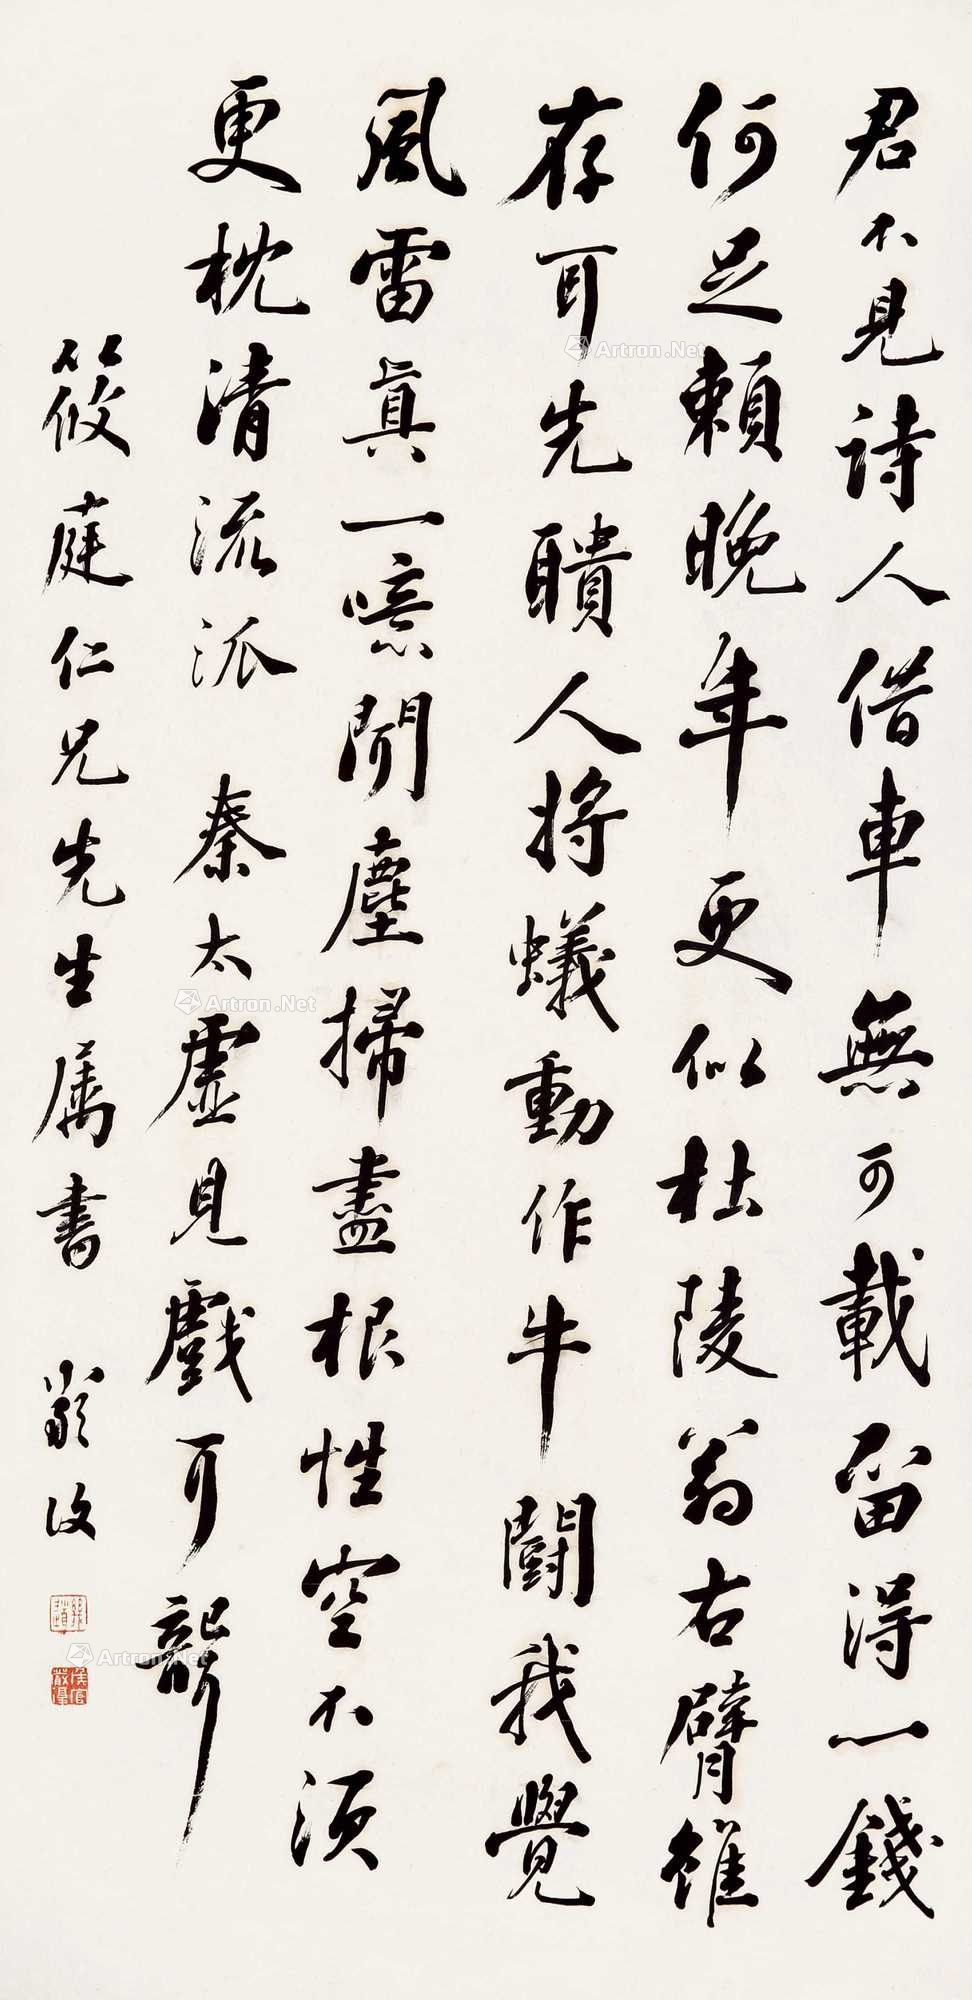 君不見詩人借車無可載留得一錢
何足賴晚年更似杜陵翁右臂雖
存耳先聵人將蟻動作牛鬭我覺
風雷真一噫聞塵掃盡根性空不須
更枕清流派 秦太虛見戲耳聾
筱庭仁兄先生属書 嚴復
Artron.Net
Artron.Net
Artron.Net